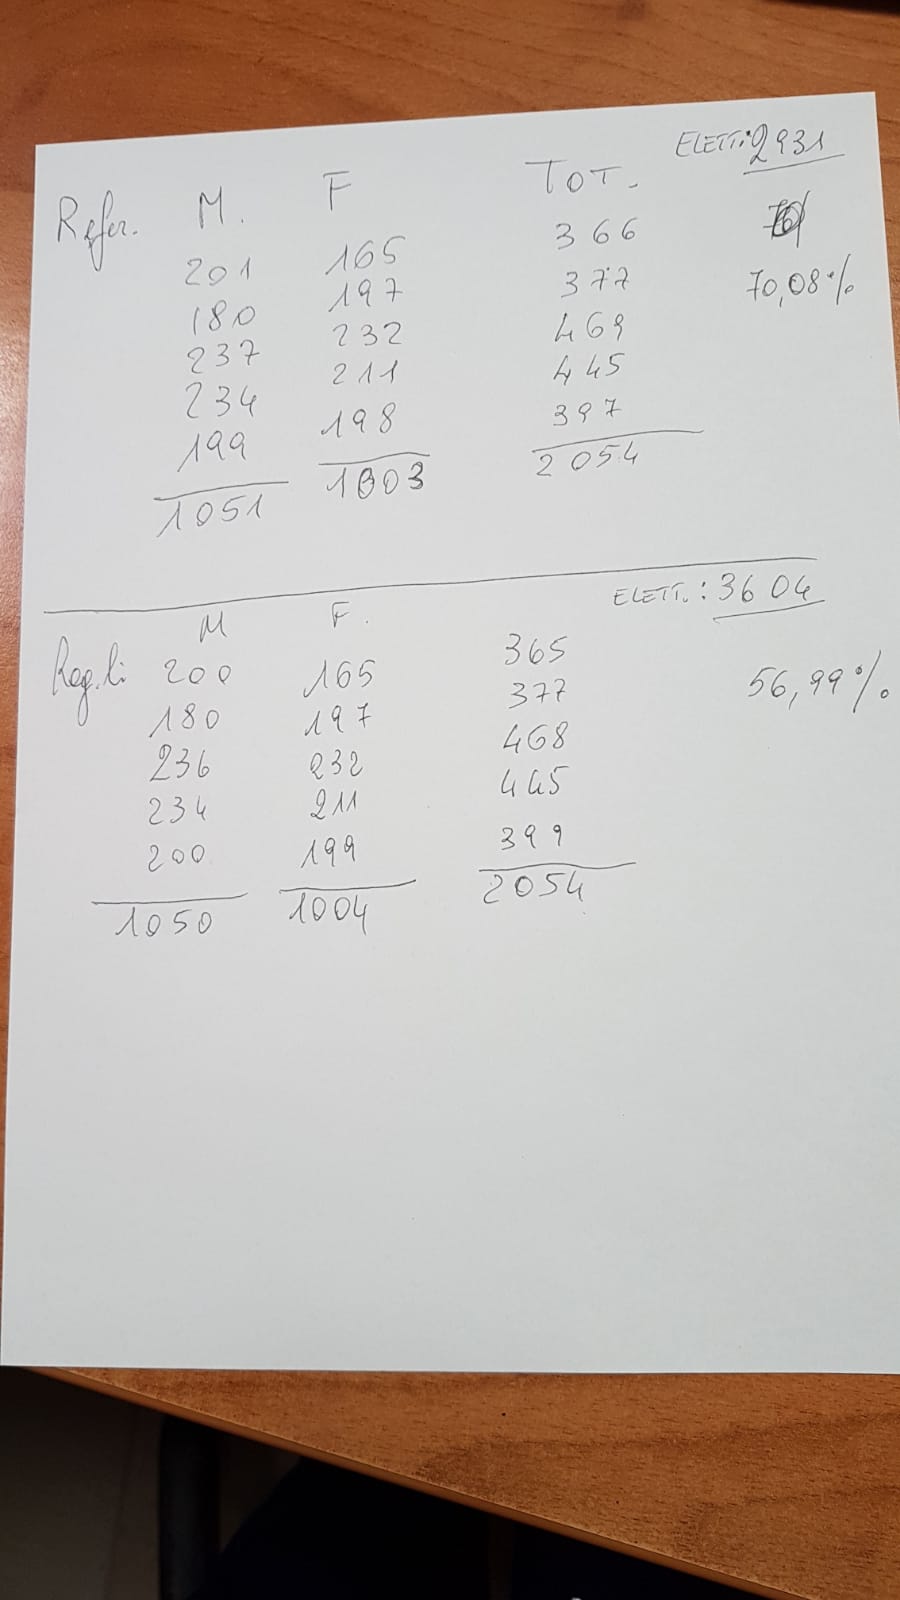 ELETT: 2931
Refer. M. F TOT.
201 165 366
180 197 377 70,08%
237 232 469
234 211 445
199 198 397
1051 1003 2054
ELETT.: 3604
M F.
Reg.li 200 165 365
180 197 377 56,99%
236 232 468
234 211 445
200 199 399
1050 1004 2054